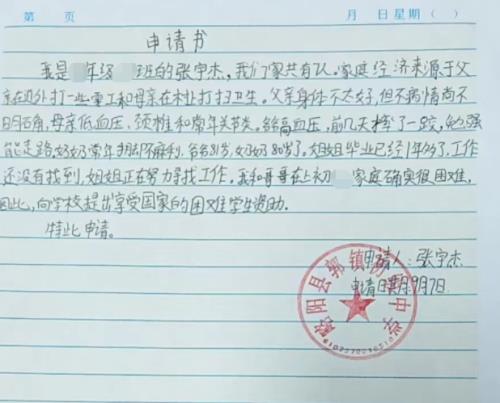 第 页 月 日 星期( )
申请书
我是 年级 班的张宇杰,我们家共有7人。家庭经济来源于父
亲在外打一些零工和母亲在村打扫卫生。父亲身体不太好,但不病情尚不
明确,母亲低血压、颈椎和常年关节炎。爷爷高血压,前几天摔了一跤,勉强
能走路。奶奶常年手脚不麻利。爷爷81岁,奶奶80岁了。姐姐毕业已经1年多了,工作
还没有找到,姐姐正在努力寻找工作。我和哥哥在上初 家庭确实很困难,
因此,向学校提出享受国家的困难学生资助。
特此申请。
申请人:张宇杰
申请日期 9月7日
略阳县郭镇 中学